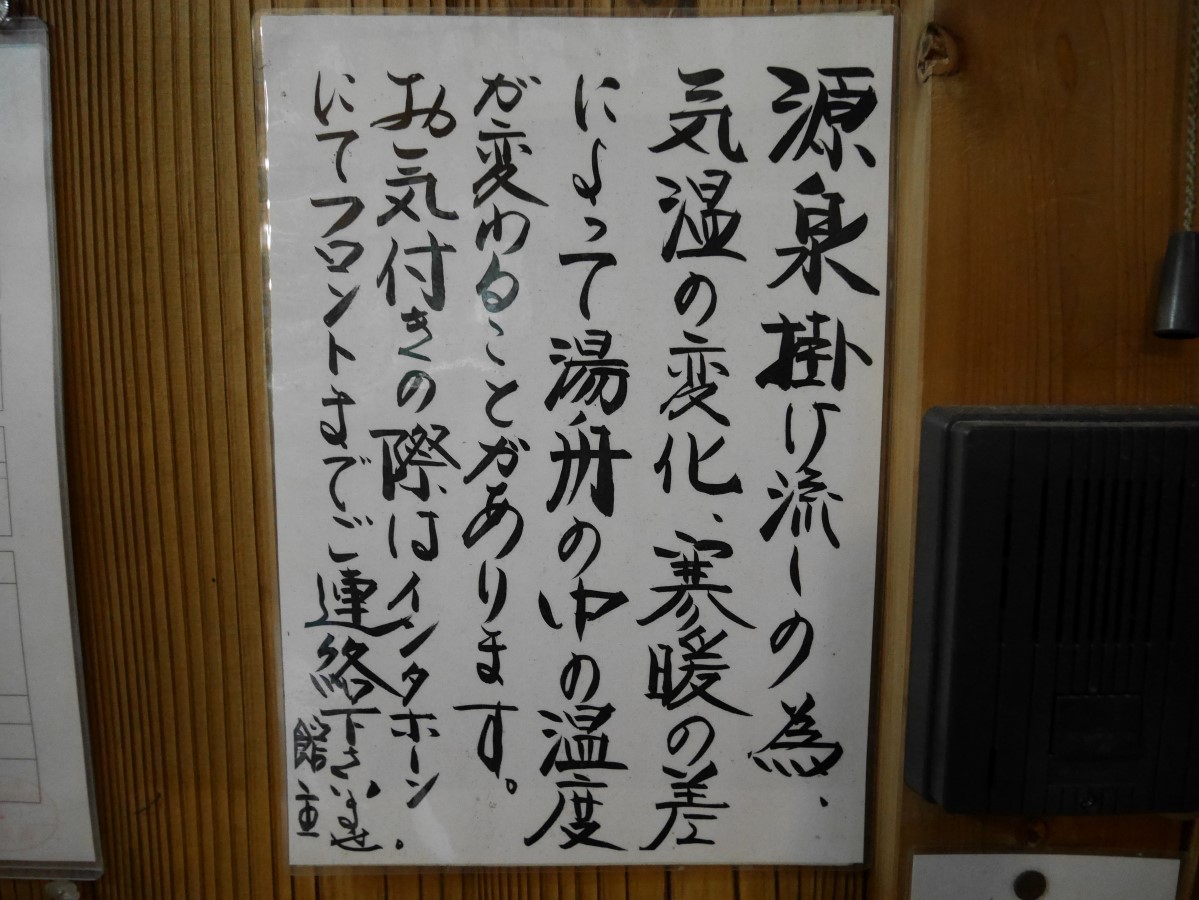 源泉掛け流しの為、
気温の変化、寒暖の差
によって湯舟の中の温度
が変わることがあります。
お気付きの際はインタホーン、
にてフロントまでご連絡下さいませ。
館主